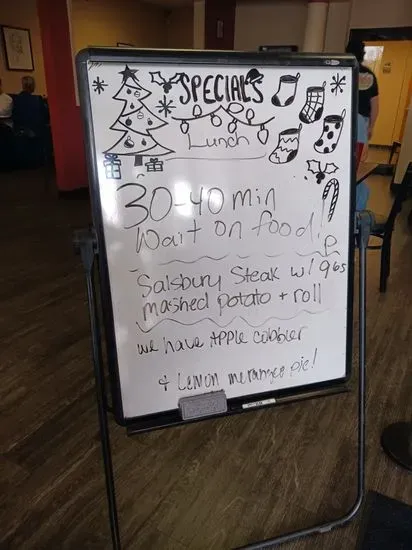 SPECIALS
Lunch
30-40 min
Wait on food!
Salsbury Steak w/ 9.65
mashed potato + roll
we have APPLE cobbler
+ Lemon merangee pie!